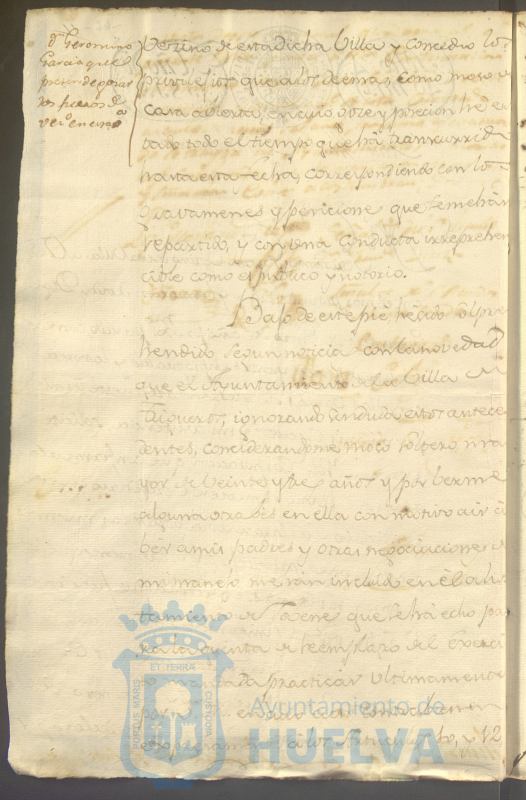 Dn. Geronimo
Garcia que
pretende gozar
los fueros de
vecº en esta
Vezino de esta dicha Villa y concedio los
privilejios que a los demas, como moso de
casa abierta, en cuio goze y posecion he es
tado todo el tiempo que ha transcurrido
hasta esta fecha, correspondiendo con los
gravamenes y pencione que se me han
repartido, y con una conducta irreprehen
cible como es publico y notorio.
Bajo de este pie he sido
hendido segun noticia con la novedad
que el Ayuntamiento de la Villa de
Trigueros, ignorando sin duda estos antece
dentes, conciderandome moso soltero ma
yor de veinte y tre años y por berme
alguna otra ves en ella con motivo a ir a
ber a mis padres y otras negociaciones de
mi manejo me han incluido en el alis
tamiento de Jovene que se ha echo pa
ra la quinta de reemplazo del Exerci
to practicar ultimamente
PORTUS MARIS
ET TERRÆ
CUSTODIA
Ayuntamiento de
HUELVA